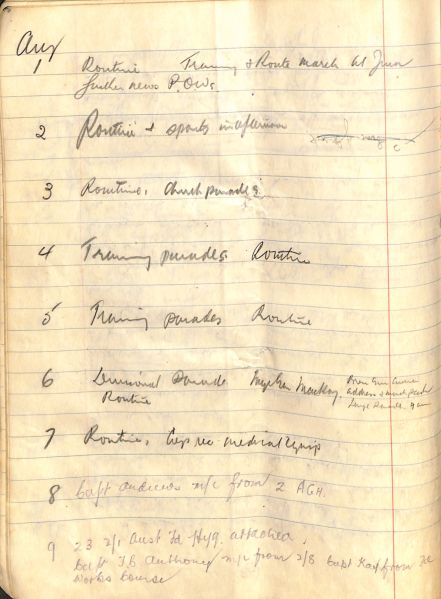 Aug
1 Routine Training & Route march
further news P.O.Ws
2 Routine & sports in afternoon
3 Routine, Church parade
4 Training parades Routine
5 Training parades Routine
6 Divisional Parade Maj Gen Mackay,
Routine
7 Routine, medical equip
8 Capt Andrews m/c from 2 AGH.
9 23 2/1 Aust Fd Hyg. attached,
Capt Anthoney m/c from 2/8 Capt Kay from
course